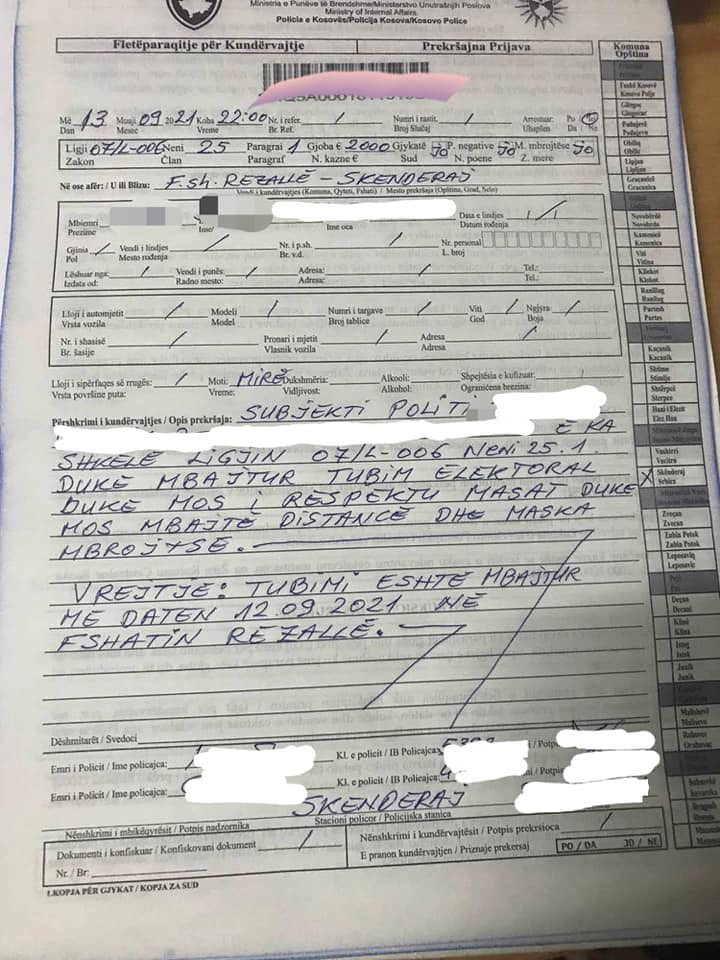 Ministria e Punëve të Brendshme/Ministarstvo Unutrašnjih Poslova
Ministry of Internal Affairs
Policia e Kosovës/Policija Kosova/Kosovo Police
Fletëparaqitje për Kundërvajtje Prekršajna Prijava
Më 13 Muaji 09 2021 Koha 22:00 Nr. i refer. / Numri i rastit. / Arrestuar: Po Jo
Dan Mesec Vreme Br. Ref. Broj Slučaj Uhapšen Da Ne
Ligji 07/L-006 Neni 25 Paragrafi 1 Gjoba € 2000 Gjykatë Jo P. negative Jo M. mbrojtëse Jo
Zakon Član Paragraf N. kazne € Sud N. poene Z. mere
Në ose afër: / U ili Blizu: F.sh. REZALLË - SKENDERAJ
Vendi i kundërvajtjes (Komuna, Qyteti, Fshati) / Mesto prekršaja (Opština, Grad, Selo)
Mbiemri Data e lindjes / /
Prezime Ime/ Ime oca Datum rođenja
Gjinia / Vendi i lindjes / Nr. i p.sh. / Nr. personal
Pol Mesto rođenja Br. v.d. L. broj
Lëshuar nga: / Vendi i punës: / Adresa: / Tel.:
Izdata od: Radno mesto: Adresa: Tel.:
Lloji i automjetit / Modeli / Numri i targave / Viti / Ngjyra /
Vrsta vozila Model Broj tablice God Boja
Nr. i shasisë / Pronari i mjetit / Adresa /
Br. šasije Vlasnik vozila Adresa
Lloji i sipërfaqes së rrugës: / Moti: MIRË Dukshmëria: Alkooli: Shpejtësia e kufizuar:
Vrsta površine puta: Vreme: Vidljivost: Alkohol: Ograničena brezina:
Përshkrimi i kundërvajtjes / Opis prekršaja: SUBJEKTI POLITI
E KA
SHKELË LIGJIN 07/L-006 Neni 25.1
DUKE MBAJTUR TUBIM ELEKTORAL
DUKE MOS I RESPEKTU MASAT DUKE
MOS MBAJTË DISTANCË DHE MASKA
MBROJTSE.
VREJTJE: TUBIMI ESHTË MBAJTUR
ME DATEN 12.09.2021 NË
FSHATIN REZALLË.
Dëshmitarët / Svedoci
Emri i Policit / Ime policajca: Kl. e policit / IB Policajca / Potpis
Emri i Policit / Ime policajca: Kl. e policit / IB Policajca: / Potpis
SKENDERAJ
Nënshkrimi i mbikëqyrësit / Potpis nadzornika Stacioni policor / Policijska stanica
Dokumenti i konfiskuar / Konfiskovani dokument / Nënshkrimi i kundërvajtësit / Potpis prekrsioca /
Nr. / Br: E pranon kundërvajtjen / Priznaje prekersaj PO / DA JO / NE
1.KOPJA PËR GJYKAT / KOPJA ZA SUD
Komuna
Opština
Fushë Kosovë
Kosovo Polje
Gllogoc
Glogovac
Podujevë
Podujevo
Obiliq
Obilic
Lipjan
Lipljan
Graçanicë
Gracanica
Novobërdë
Novobrdo
Kamenicë
Kamenica
Viti
Vitina
Kllokot
Klokot
Ranillug
Ranilug
Partesh
Partes
Kaçanik
Kacanik
Shtime
Stimlje
Shtërpcë
Sterpce
Hani i Elezit
Elez Han
Vushtrri
Vucitrn
X Skënderaj
Srbica
Zveçan
Zvecan
Zubin Potok
Zubin Potok
Leposaviq
Leposavic
Deçan
Decani
Klinë
Klina
Istog
Istok
Junik
Junik
Malishevë
Malisevo
Rahovec
Orahovac